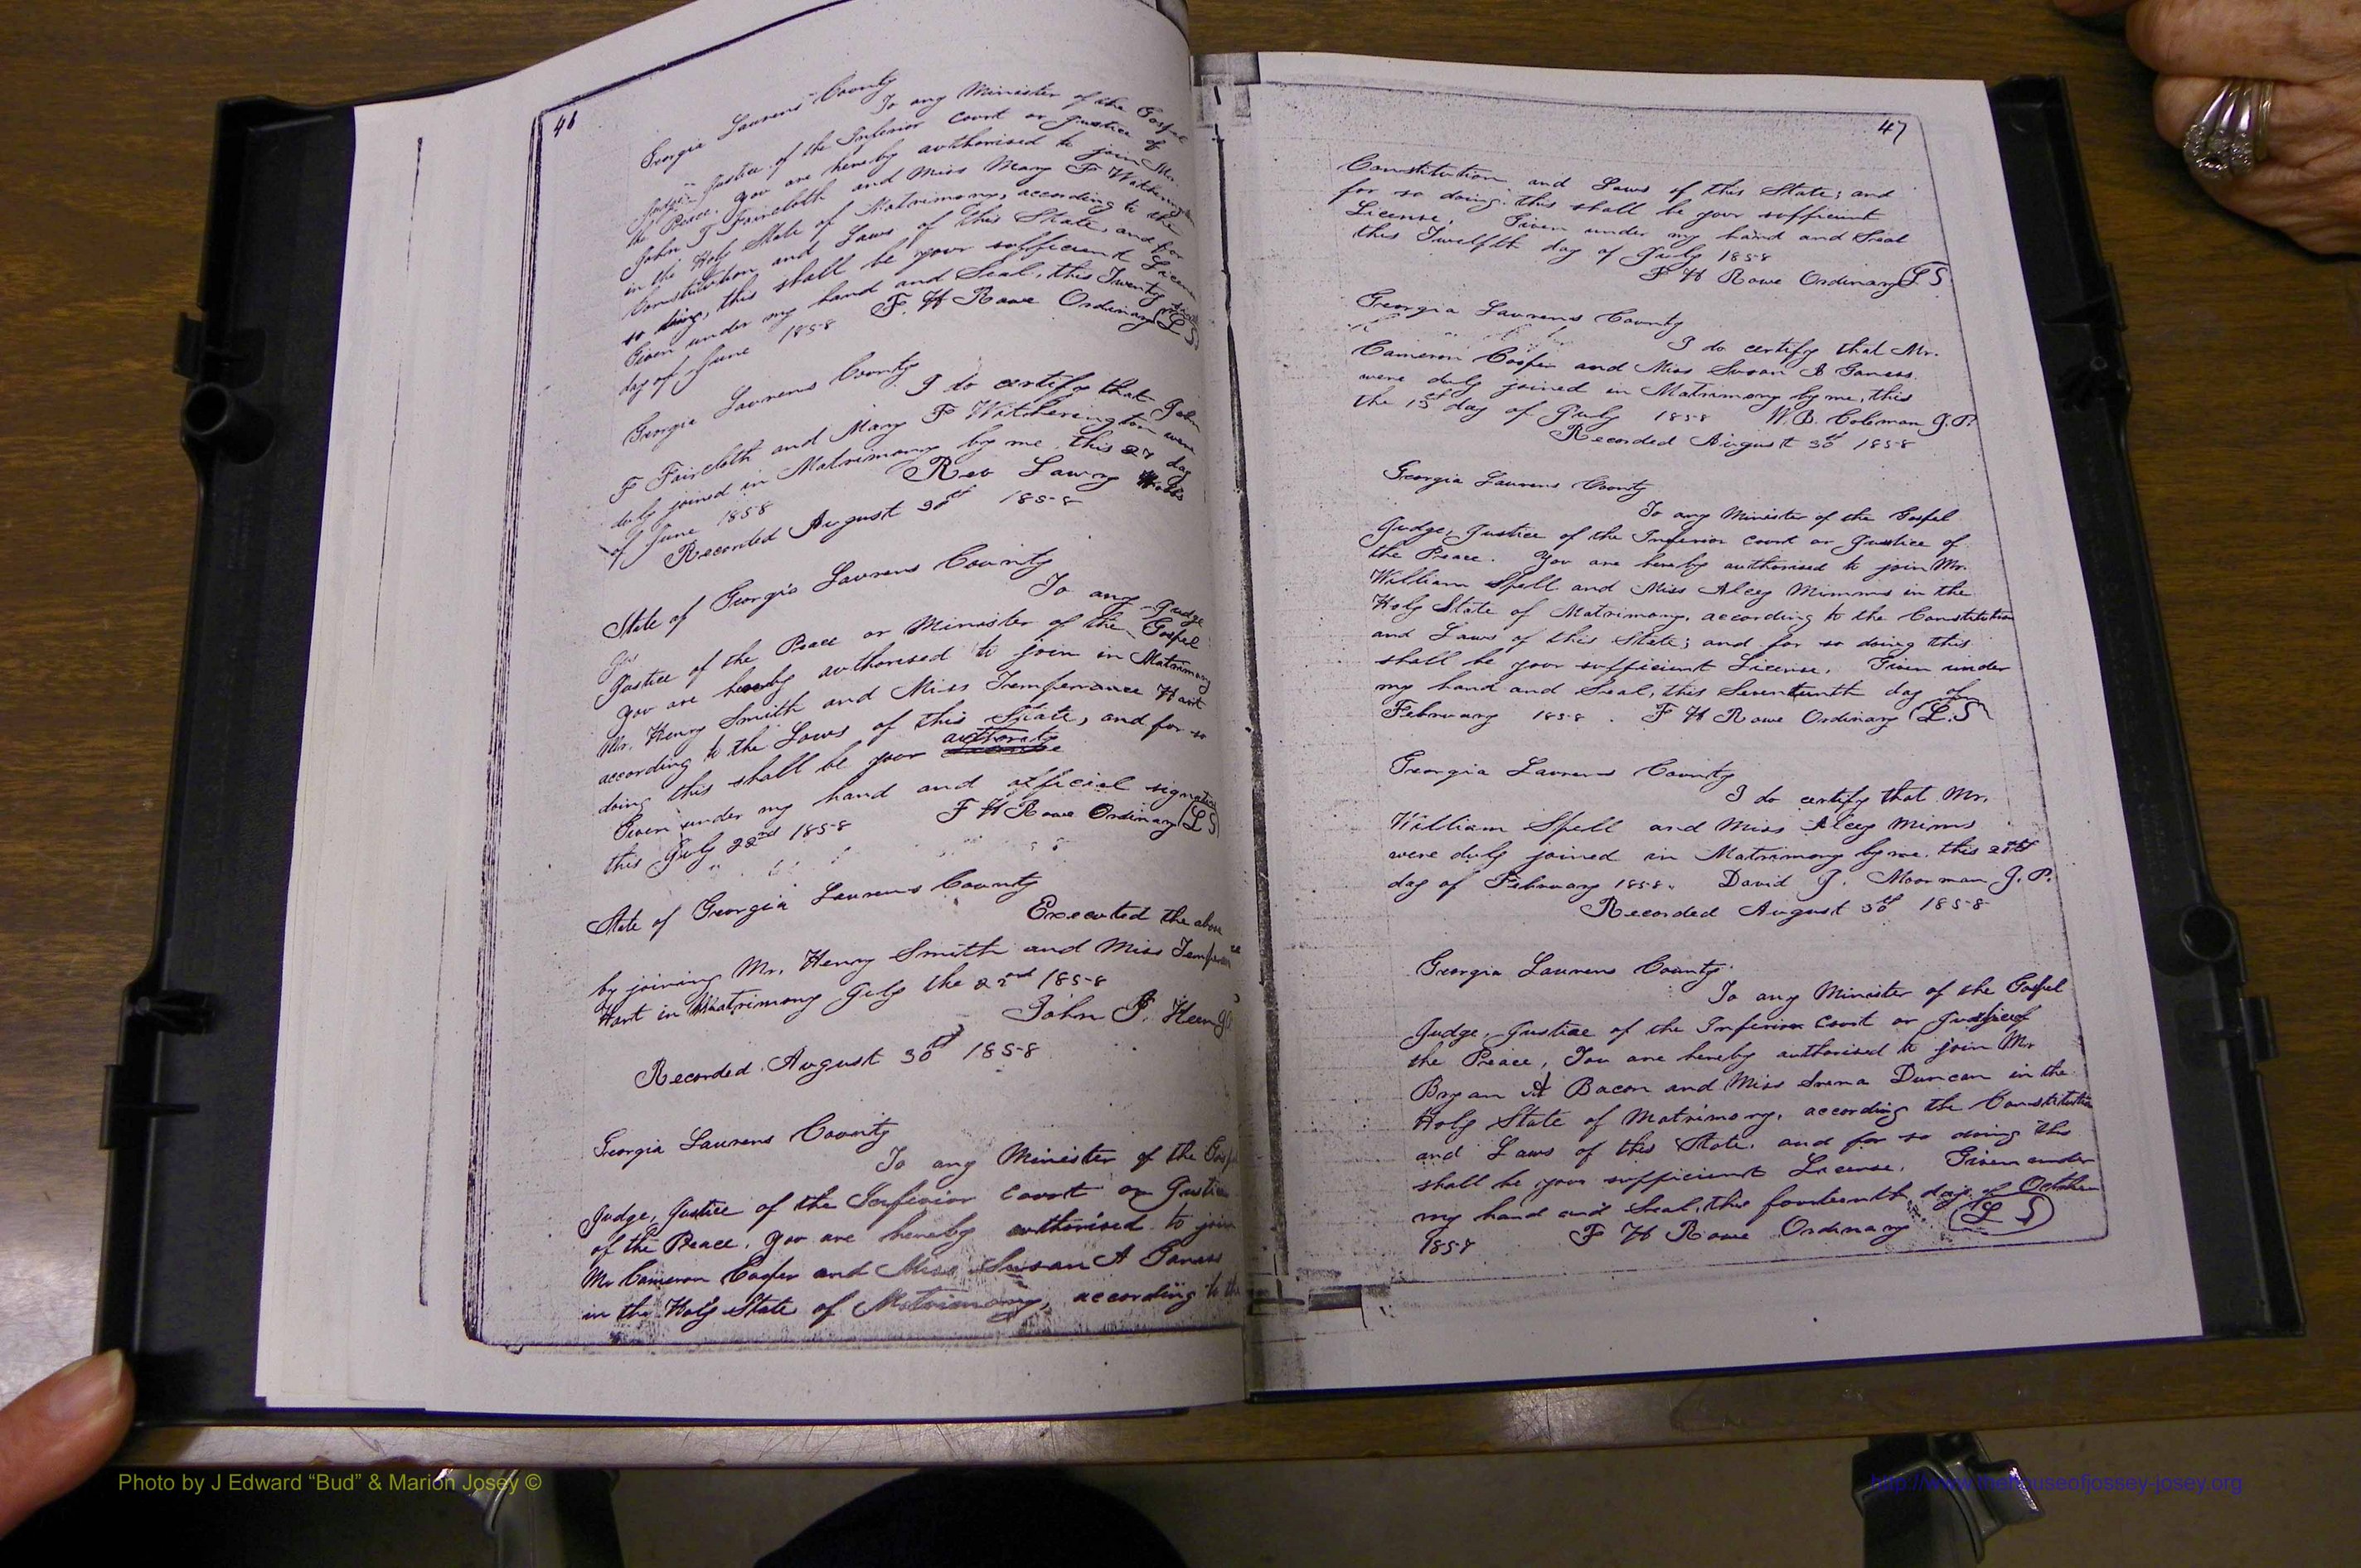 46
Georgia Laurens County
To any Minister of the Gospel
Judge Justice of the Inferior Court or Justice of
the Peace. You are hereby authorised to join Mr.
John F Faircloth and Miss Mary F Witherington
in the Holy State of Matrimony, according to the
Constitution and Laws of this State, and for
so doing, this shall be your sufficient License
Given under my hand and Seal, this Twenty
day of June 1858 F. H Rowe Ordinary (L S)
Georgia Laurens County
I do certify that John
F Faircloth and Mary F Witherington were
duly joined in Matrimony by me this 27 day
of June 1858 Rev Lawry
Recorded August 30th 1858
State of Georgia Laurens County
To any Judge
Justice of the Peace or Minister of the Gospel
You are hereby authorised to join in Matrimony
Mr. Henry Smith and Miss Temperance Hart
according to the Laws of this State, and for so
doing this shall be your authority
Given under my hand and official signature
this July 22nd 1858 F H Rowe Ordinary (L S)
State of Georgia Laurens County
Executed the above
by joining Mr. Henry Smith and Miss Temperance
Hart in Matrimony July the 22nd 1858
John P. Keen
Recorded August 30th 1858
Georgia Laurens County
To any Minister of the Gospel
Judge, Justice of the Inferior Court or Justice
of the Peace. You are hereby authorised to join
Mr Cameron Cooper and Miss Susan A
in the Holy State of Matrimony, according to the
47
Constitution and Laws of this State; and
for so doing this shall be your sufficient
License. Given under my hand and Seal
this Twelfth day of July 1858
F H Rowe Ordinary (L S)
Georgia Laurens County
I do certify that Mr.
Cameron Cooper and Miss Susan
were duly joined in Matrimony by me, this
the 15th day of July 1858 W. B. Coleman J.P.
Recorded August 30th 1858
Georgia Laurens County
To any Minister of the Gospel
Judge, Justice of the Inferior Court or Justice of
the Peace. You are hereby authorised to join Mr.
William Spell and Miss Alcy Mimms in the
Holy State of Matrimony, according to the Constitution
and Laws of this State; and for so doing this
shall be your sufficient License. Given under
my hand and Seal, this Seventeenth day of
February 1858. F H Rowe Ordinary (L.S)
Georgia Laurens County
I do certify that Mr.
William Spell and Miss Alcy Mims
were duly joined in Matrimony by me, this
day of February 1858. David J. Moorman J. P.
Recorded August 30th 1858
Georgia Laurens County
To any Minister of the Gospel
Judge, Justice of the Inferior Court or Justice of
the Peace, You are hereby authorised to join Mr
Bryan A Bacon and Miss Duncan in the
Holy State of Matrimony, according the Constitution
and Laws of this State, and for so doing this
shall be your sufficient License. Given under
my hand and Seal, this fourteenth day of October
1857 F H Rowe Ordinary (L S)
Photo by J Edward “Bud” & Marion Josey ©
http://www.thehouseofjossey-josey.org